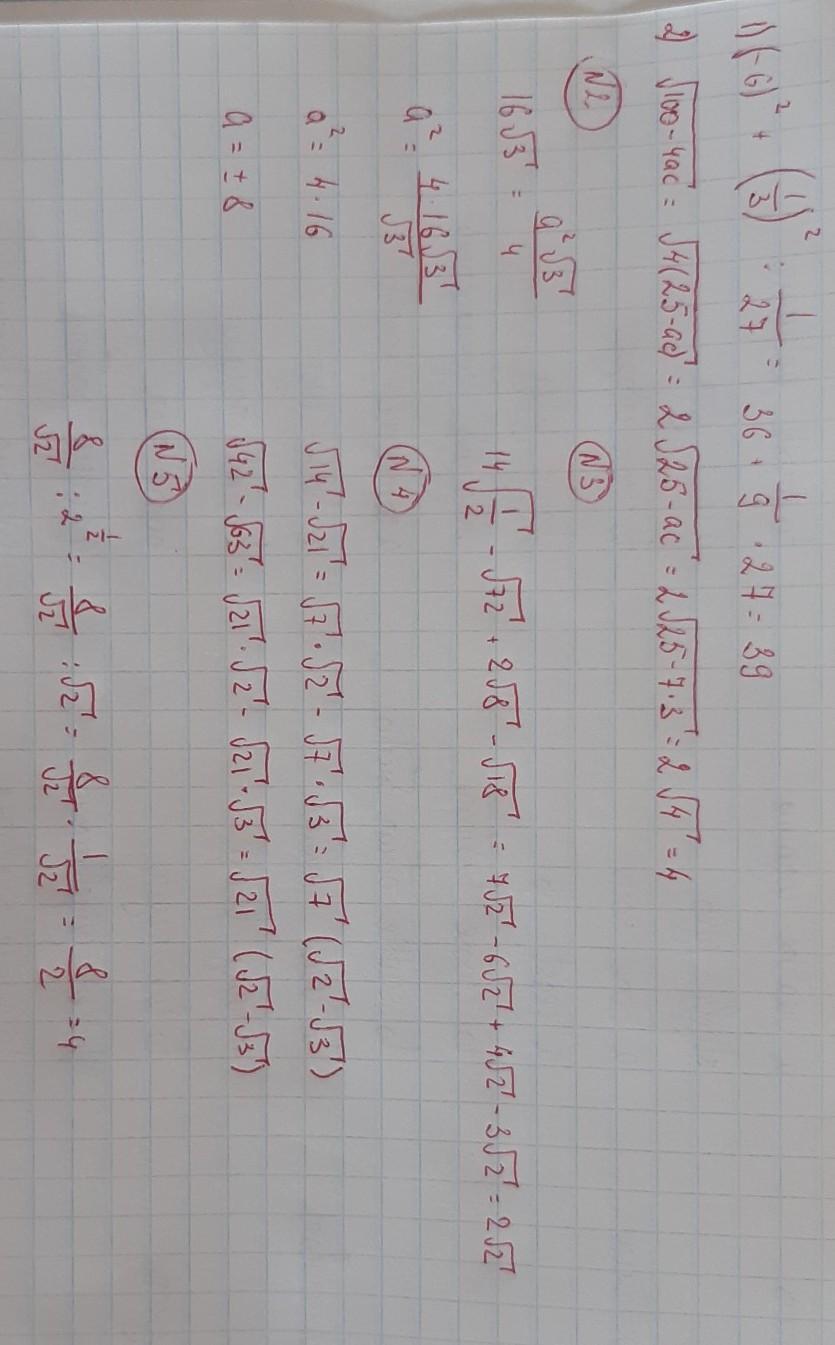 1) (-6)² + (1/3)² : 1/27 = 36 + 1/9 · 27 = 39
2) √(100-4ac) = √(4(25-ac)) = 2√(25-ac) = 2√(25-7·3) = 2√4 = 4
N2
16√3 = a²√3/4
a² = 4·16√3/√3
a² = 4·16
a = ±8
N3
14√(1/2) - √72 + 2√8 - √18 = 7√2 - 6√2 + 4√2 - 3√2 = 2√2
N4
√14 - √21 = √7·√2 - √7·√3 = √7 (√2-√3)
√42 - √63 = √21·√2 - √21·√3 = √21 (√2-√3)
N5
8/√2 : 2^(1/2) = 8/√2 : √2 = 8/√2 · 1/√2 = 8/2 = 4